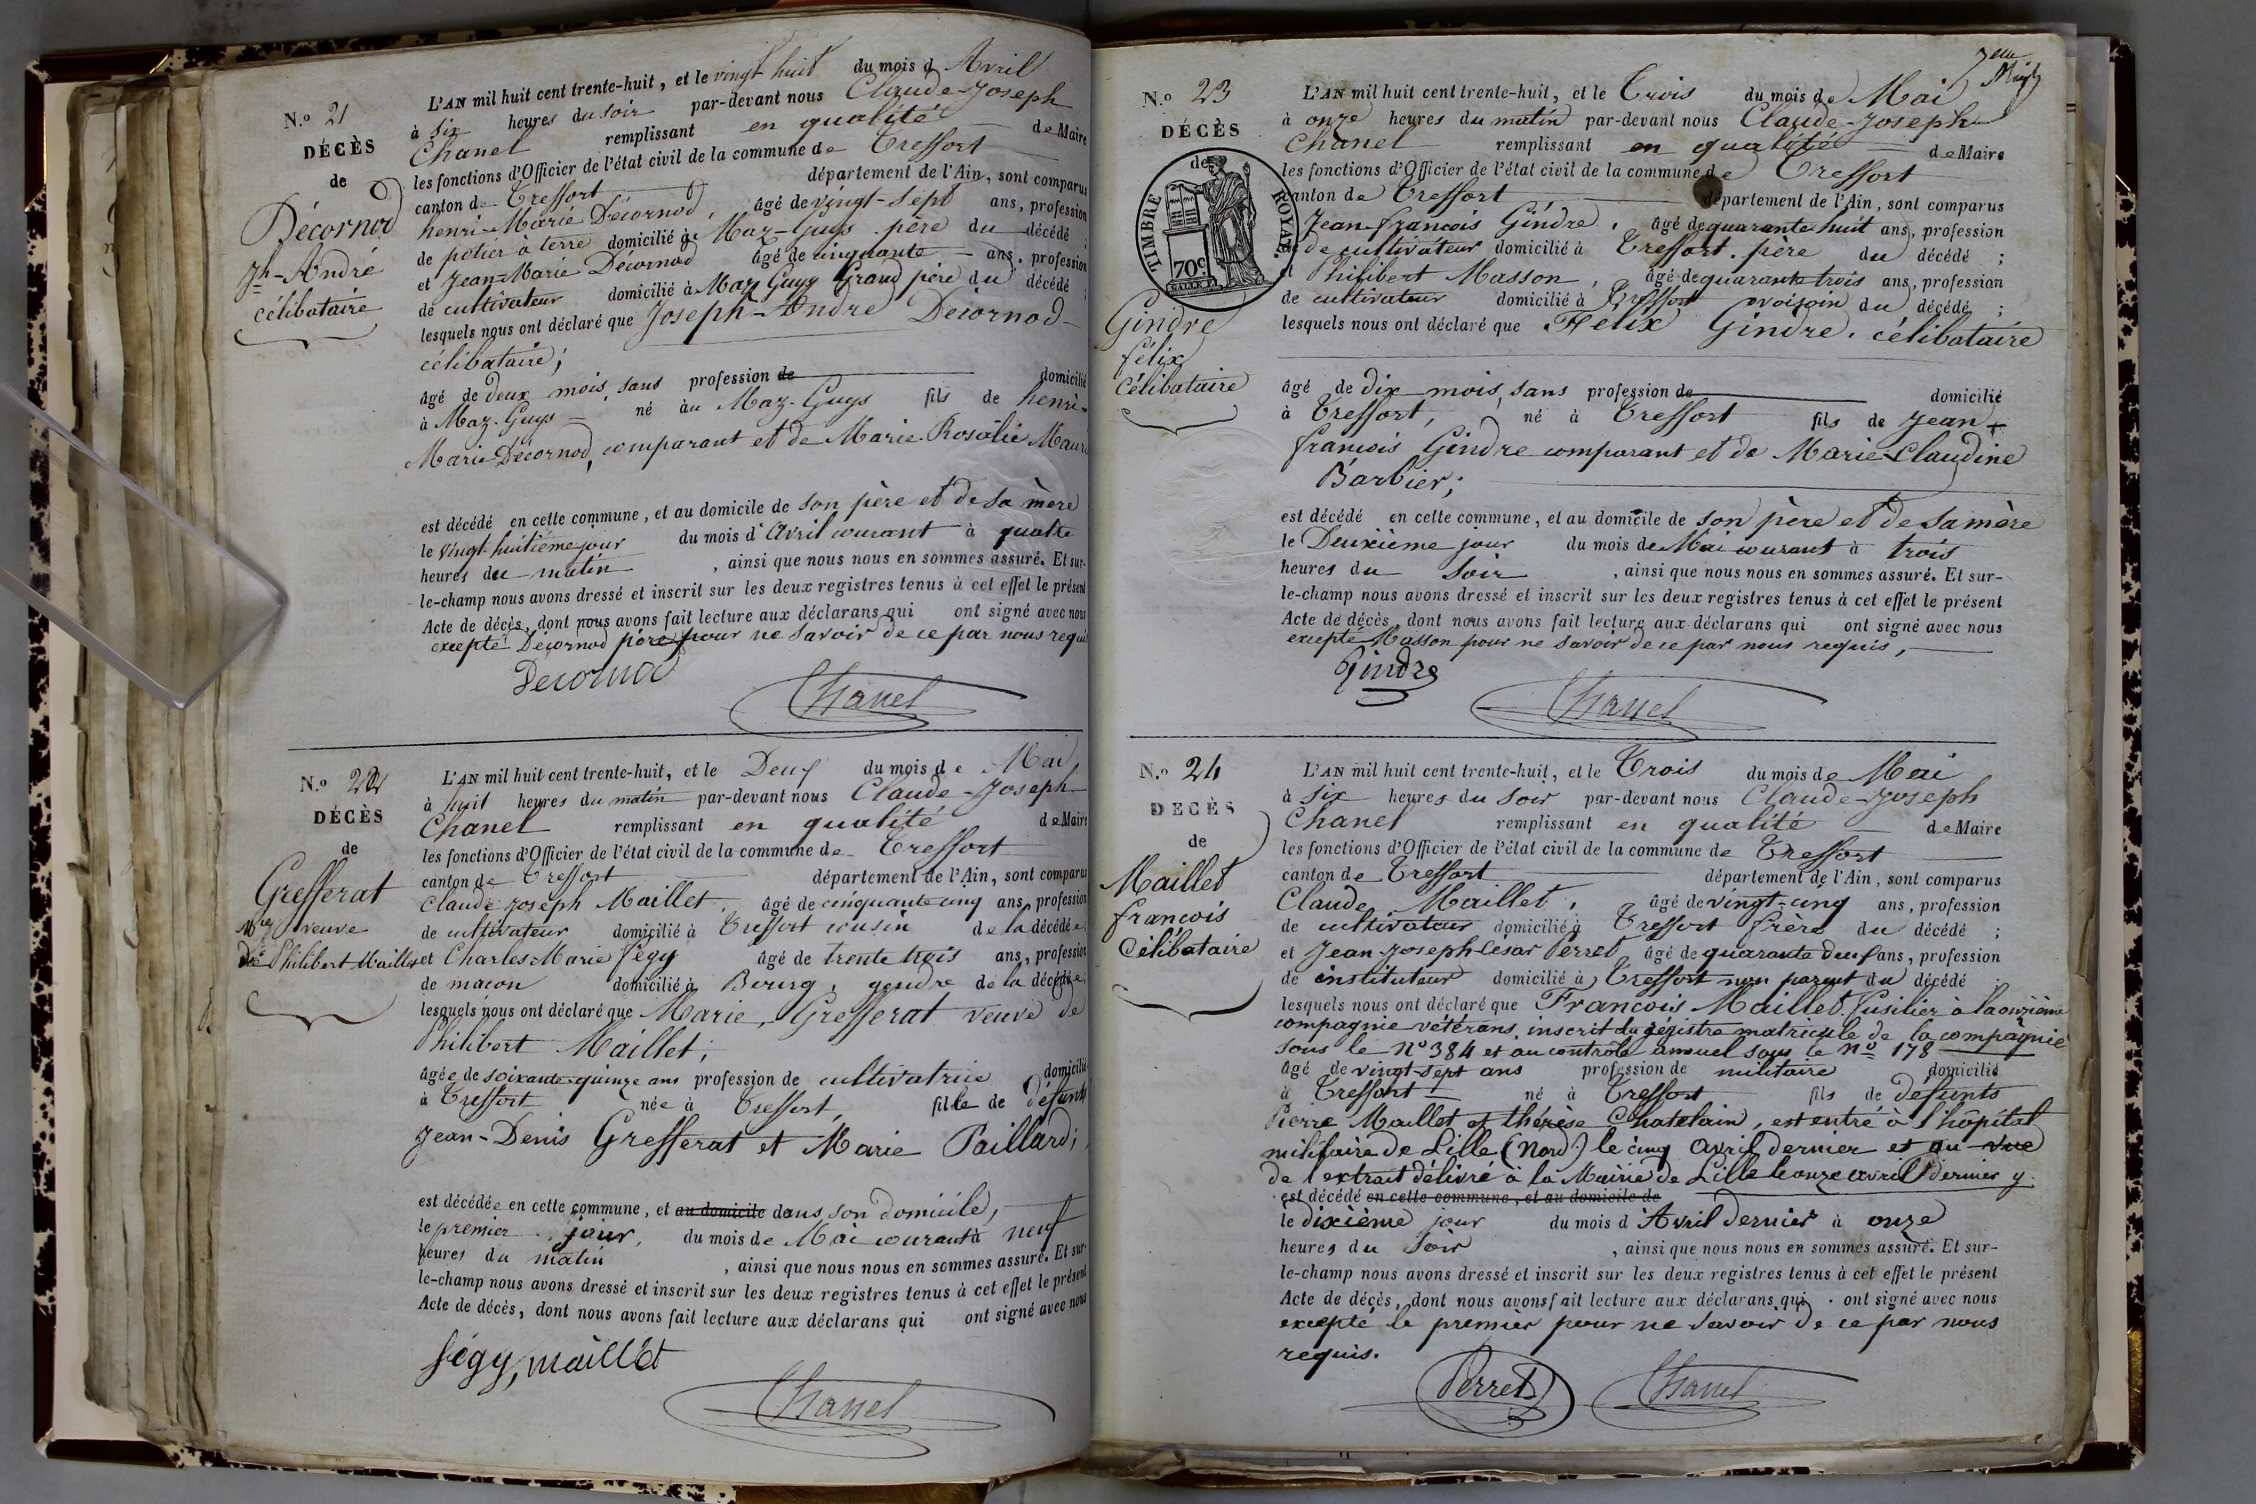 N.o 21
DÉCÈS
de
Décornod
Jh-André
célibataire
L'AN mil huit cent trente-huit, et le vingt huit du mois d Avril
à six heures du soir par-devant nous Claude-Joseph
Chanel remplissant en qualité de Maire
les fonctions d'Officier de l'état civil de la commune de Treffort
canton de Treffort département de l'Ain, sont comparus
henri-Marie Décornod, âgé de vingt-sept ans, profession
de potier à terre domicilié à Maz-Guys père du décédé ;
et Jean-Marie Décornod âgé de cinquante ans, profession
de cultivateur domicilié à Maz Guys Grand père du décédé ;
lesquels nous ont déclaré que Joseph-André Décornod
célibataire;
âgé de deux mois, sans profession de domicilié
à Maz-Guys né au Maz-Guys fils de henri-
Marie Décornod, comparant et de Marie-Rosalie
est décédé en cette commune, et au domicile de son père et de sa mère
le vingt-huitième jour du mois d'Avril courant à quatre
heures du matin, ainsi que nous nous en sommes assuré. Et sur-
le-champ nous avons dressé et inscrit sur les deux registres tenus à cet effet le présent
Acte de décès, dont nous avons fait lecture aux déclarans qui ont signé avec nous
excepté Décornod père pour ne savoir de ce par nous requis
Decornod
Chanel
N.o 22
DÉCÈS
de
Grefferat
Mie veuve
de Philibert Maillet
L'AN mil huit cent trente-huit, et le Deux du mois de Mai
à huit heures du matin par-devant nous Claude-Joseph
Chanel remplissant en qualité de Maire
les fonctions d'Officier de l'état civil de la commune de Treffort
canton de Treffort département de l'Ain, sont comparus
Claude Joseph Maillet, âgé de cinquante cinq ans, profession
de cultivateur domicilié à Treffort cousin de la décédée;
et Charles Marie Fégy âgé de trente trois ans, profession
de macon domicilié à Bourg, gendre de la décédée;
lesquels nous ont déclaré que Marie, Grefferat veuve de
Philibert Maillet;
âgée de soixante-quinze ans profession de cultivatrice domicilié
à Treffort née à Treffort, fille de défunts
Jean-Denis Grefferat et Marie Paillard;
est décédée en cette commune, et au domicile dans son domicile,
le premier jour, du mois de Mai courant à neuf
heures du matin, ainsi que nous nous en sommes assuré. Et sur-
le-champ nous avons dressé et inscrit sur les deux registres tenus à cet effet le présent
Acte de décès, dont nous avons fait lecture aux déclarans qui ont signé avec nous
fégy, maillet
Chanel
7eme
N.o 23
DÉCÈS
de
TIMBRE ROYAL.
70c
Gindre
félix
Célibataire
L'AN mil huit cent trente-huit, et le Trois du mois de Mai
à onze heures du matin par-devant nous Claude-Joseph
Chanel remplissant en qualité de Maire
les fonctions d'Officier de l'état civil de la commune de Treffort
canton de Treffort département de l'Ain, sont comparus
Jean-francois Gindre, âgé de quarante huit ans, profession
de cultivateur domicilié à Treffort. père du décédé ;
et Philibert Masson, âgé de quarante trois ans, profession
de cultivateur domicilié à Treffort voisin du décédé ;
lesquels nous ont déclaré que Félix Gindre. célibataire
âgé de dix mois, sans profession de domicilié
à Treffort, né à Treffort fils de Jean
francois Gindre comparant et de Marie-Claudine
Barbier;
est décédé en cette commune, et au domicile de son père et de sa mère
le Deuxième jour du mois de Mai courant à trois
heures du soir, ainsi que nous nous en sommes assuré. Et sur-
le-champ nous avons dressé et inscrit sur les deux registres tenus à cet effet le présent
Acte de décès, dont nous avons fait lecture aux déclarans qui ont signé avec nous
excepté Masson pour ne savoir de ce par nous requis,
Gindre
Chanel
N.o 24
DÉCÈS
de
Maillet
francois
Célibataire
L'AN mil huit cent trente-huit, et le Trois du mois de Mai
à six heures du soir par-devant nous Claude-Joseph
Chanel remplissant en qualité de Maire
les fonctions d'Officier de l'état civil de la commune de Treffort
canton de Treffort département de l'Ain, sont comparus
Claude Maillet, âgé de vingt-cinq ans, profession
de cultivateur domicilié à Treffort frère du décédé ;
et Jean-Joseph César Perret âgé de quarante deux ans, profession
de instituteur domicilié à Treffort non parent du décédé
lesquels nous ont déclaré que Francois Maillet. fusilier à la onzième
compagnie vétérans, inscrit au régistre matricule de la compagnie
sous le No 384 et au contrôle annuel sous le No 178
âgé de vingt-sept ans profession de militaire domicilié
à Treffort né à Treffort fils de défunts
Pierre Maillet et thérèse Chatelain, est entré à l'hôpital
militaire de Lille (Nord) le cinq Avril dernier et au vue
de l'extrait délivré à la Mairie de Lille le onze avril dernier y
est décédé en cette commune, et au domicile de
le dixième jour du mois d'Avril dernier à onze
heures du soir, ainsi que nous nous en sommes assuré. Et sur-
le-champ nous avons dressé et inscrit sur les deux registres tenus à cet effet le présent
Acte de décès, dont nous avons fait lecture aux déclarans qui ont signé avec nous
excepté le premier pour ne savoir de ce par nous
requis.
Perret
Chanel